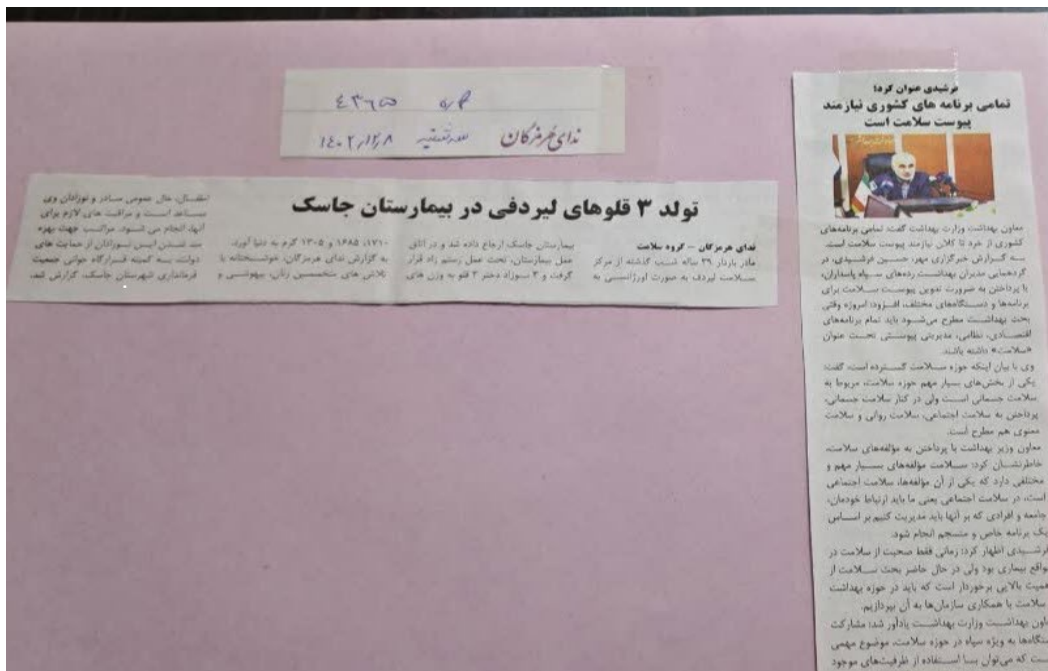 ندای هرمزگان سه‌شنبه ۱۴۰۲/۱۲/۸
تولد ۳ قلوهای لیردفی در بیمارستان جاسک
ندای هرمزگان – گروه سلامت
مادر باردار ۳۹ ساله شب گذشته از مرکز
سلامت لیردف به صورت اورژانسی به
بیمارستان جاسک ارجاع داده شد و در اتاق
عمل بیمارستان، تحت عمل رستم زاد قرار
گرفت، و ۳ نوزاد دختر ۳ قلو به وزن های
۱۷۱۰، ۱۶۸۵ و ۱۳۰۵ گرم به دنیا آورد.
به گزارش ندای هرمزگان، خوشبختانه با
تلاش های متخصصین زنان، بیهوشی و
اطفال، حال عمومی مادر و نوزادان وی
مساعد است و مراقبت های لازم برای
آنها، انجام می شود. مراتب جهت بهره
مند شدن این نوزادان از حمایت های
دولت، به کمیته قرارگاه جوانی جمعیت
فرمانداری شهرستان جاسک، گزارش شد.
فرشیدی عنوان کرد؛
تمامی برنامه های کشوری نیازمند
پیوست سلامت است
معاون بهداشت وزارت بهداشت گفت: تمامی برنامه‌های
کشوری از خرد تا کلان نیازمند پیوست سلامت است.
به گزارش خبرگزاری مهر، حسین فرشیدی، در
گردهمایی مدیران بهداشت رده‌های سپاه پاسداران،
با پرداختن به ضرورت تدوین پیوست سلامت برای
برنامه‌ها و دستگاه‌های مختلف، افزود: امروزه وقتی
بحث بهداشت مطرح می‌شود باید تمام برنامه‌های
اقتصادی، نظامی، مدیریتی پیوستی تحت عنوان
«سلامت» داشته باشند.
وی با بیان اینکه حوزه سلامت گسترده است، گفت:
یکی از بخش‌های بسیار مهم حوزه سلامت، مربوط به
سلامت جسمانی است ولی در کنار سلامت جسمانی،
پرداختن به سلامت اجتماعی، سلامت روانی و سلامت
معنوی هم مطرح است.
معاون وزیر بهداشت با پرداختن به مؤلفه‌های سلامت،
خاطرنشان کرد: سلامت مؤلفه‌های بسیار مهم و
مختلفی دارد که یکی از آن مؤلفه‌ها، سلامت اجتماعی
است، در سلامت اجتماعی یعنی ما باید ارتباط خودمان،
جامعه و افرادی که بر آنها باید مدیریت کنیم بر اساس
یک برنامه خاص و منسجم انجام شود.
فرشیدی اظهار کرد: زمانی فقط صحبت از سلامت در
واقع بیماری بود ولی در حال حاضر بحث سلامت از
همیت بالایی برخوردار است که باید در حوزه بهداشت
سلامت با همکاری سازمان‌ها به آن بپردازیم.
اون بهداشت وزارت بهداشت یادآور شد: مشارکت
ستگاه‌ها به ویژه سپاه در حوزه سلامت، موضوع مهمی
ست که می‌توان بسا استفاده از ظرفیت‌های موجود